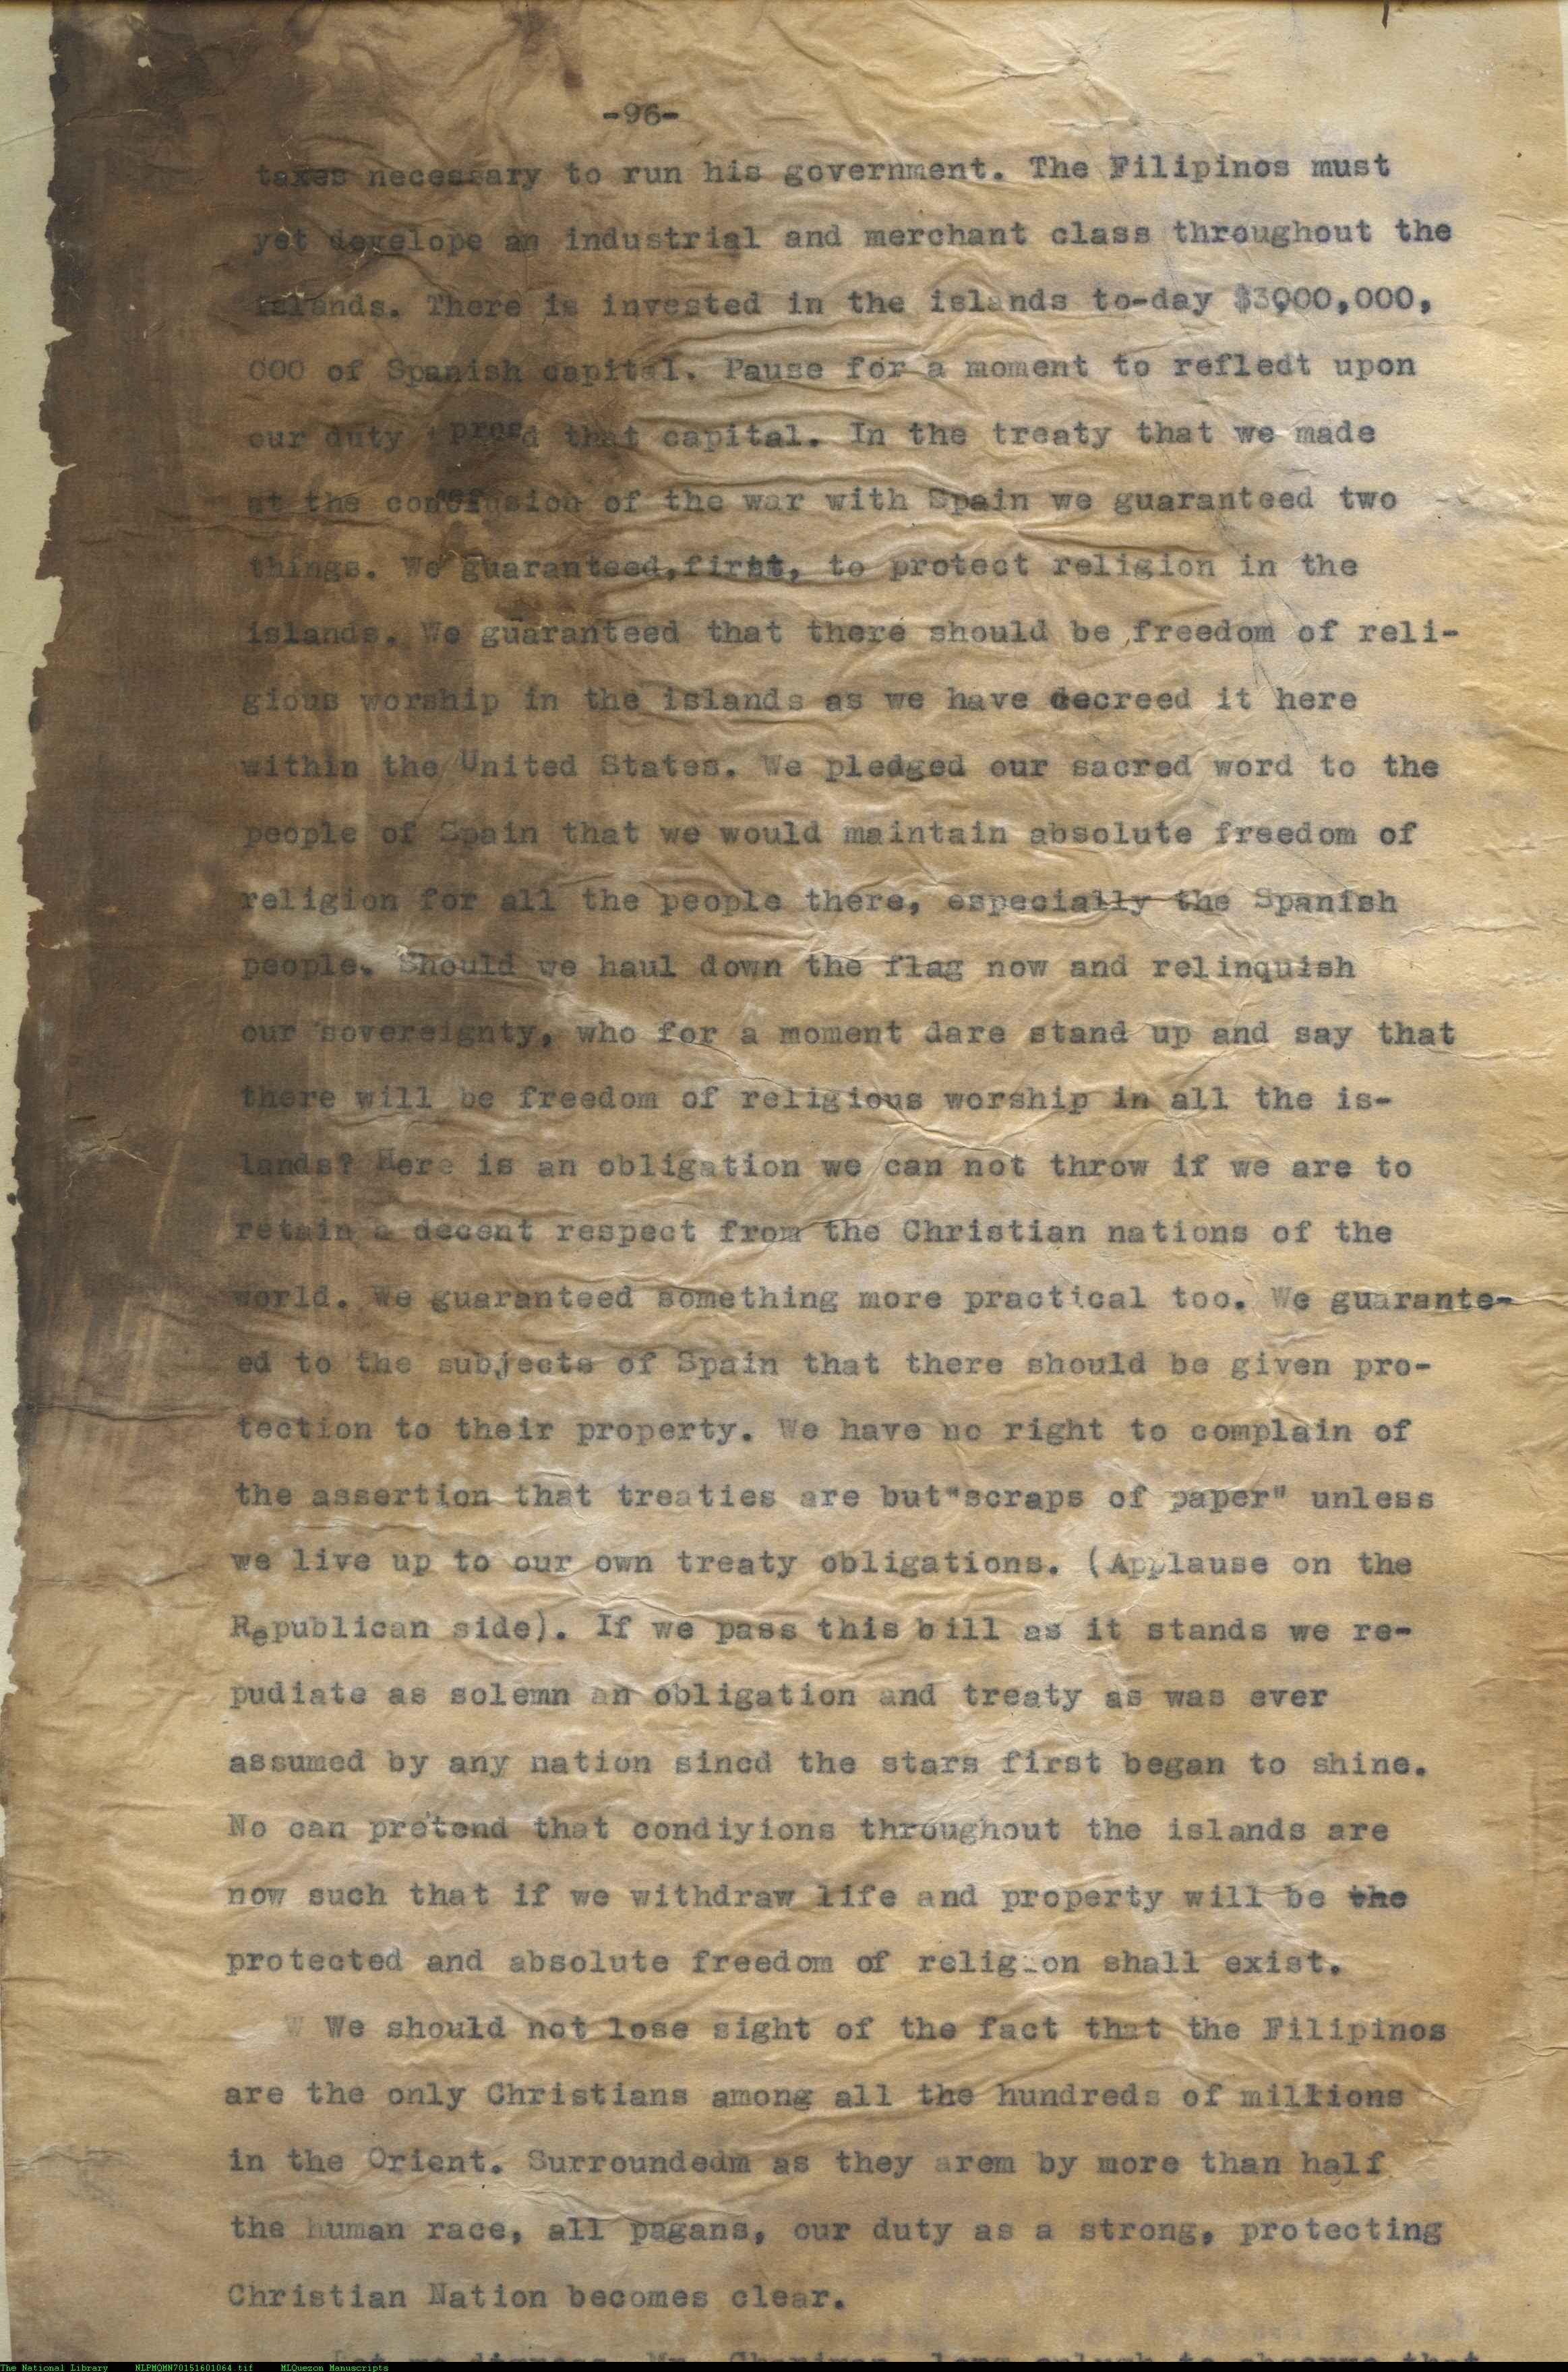 -96-
taxes necessary to run his government. The Filipinos must
yet develope an industrial and merchant class throughout the
islands. There is invested in the islands to-day $3000,000,
000 of Spanish capital. Pause for a moment to refledt upon
our duty that capital. In the treaty that we made
at the of the war with Spain we guaranteed two
things. We guaranteed,first, to protect religion in the
islands. We guaranteed that there should be freedom of reli-
gious worship in the islands as we have decreed it here
within the United States. We pledged our sacred word to the
people of Spain that we would maintain absolute freedom of
religion for all the people there, especially the Spanish
people. Should we haul down the flag now and relinquish
our sovereignty, who for a moment dare stand up and say that
there will be freedom of religious worship in all the is-
lands? Here is an obligation we can not throw if we are to
retain a decent respect from the Christian nations of the
world. We guaranteed something more practical too. We guarante-
ed to the subjects of Spain that there should be given pro-
tection to their property. We have no right to complain of
the assertion that treaties are but"scraps of paper" unless
we live up to our own treaty obligations. (Applause on the
Republican side). If we pass this bill as it stands we re-
pudiate as solemn an obligation and treaty as was ever
assumed by any nation sincd the stars first began to shine.
No can pretend that condiyions throughout the islands are
now such that if we withdraw life and property will be the
protected and absolute freedom of religion shall exist.
W We should not lose sight of the fact that the Filipinos
are the only Christians among all the hundreds of millions
in the Orient. Surroundedm as they arem by more than half
the human race, all pagans, our duty as a strong, protecting
Christian Nation becomes clear.
The National Library NLPMQMN70151601064.tif MLQuezon Manuscripts